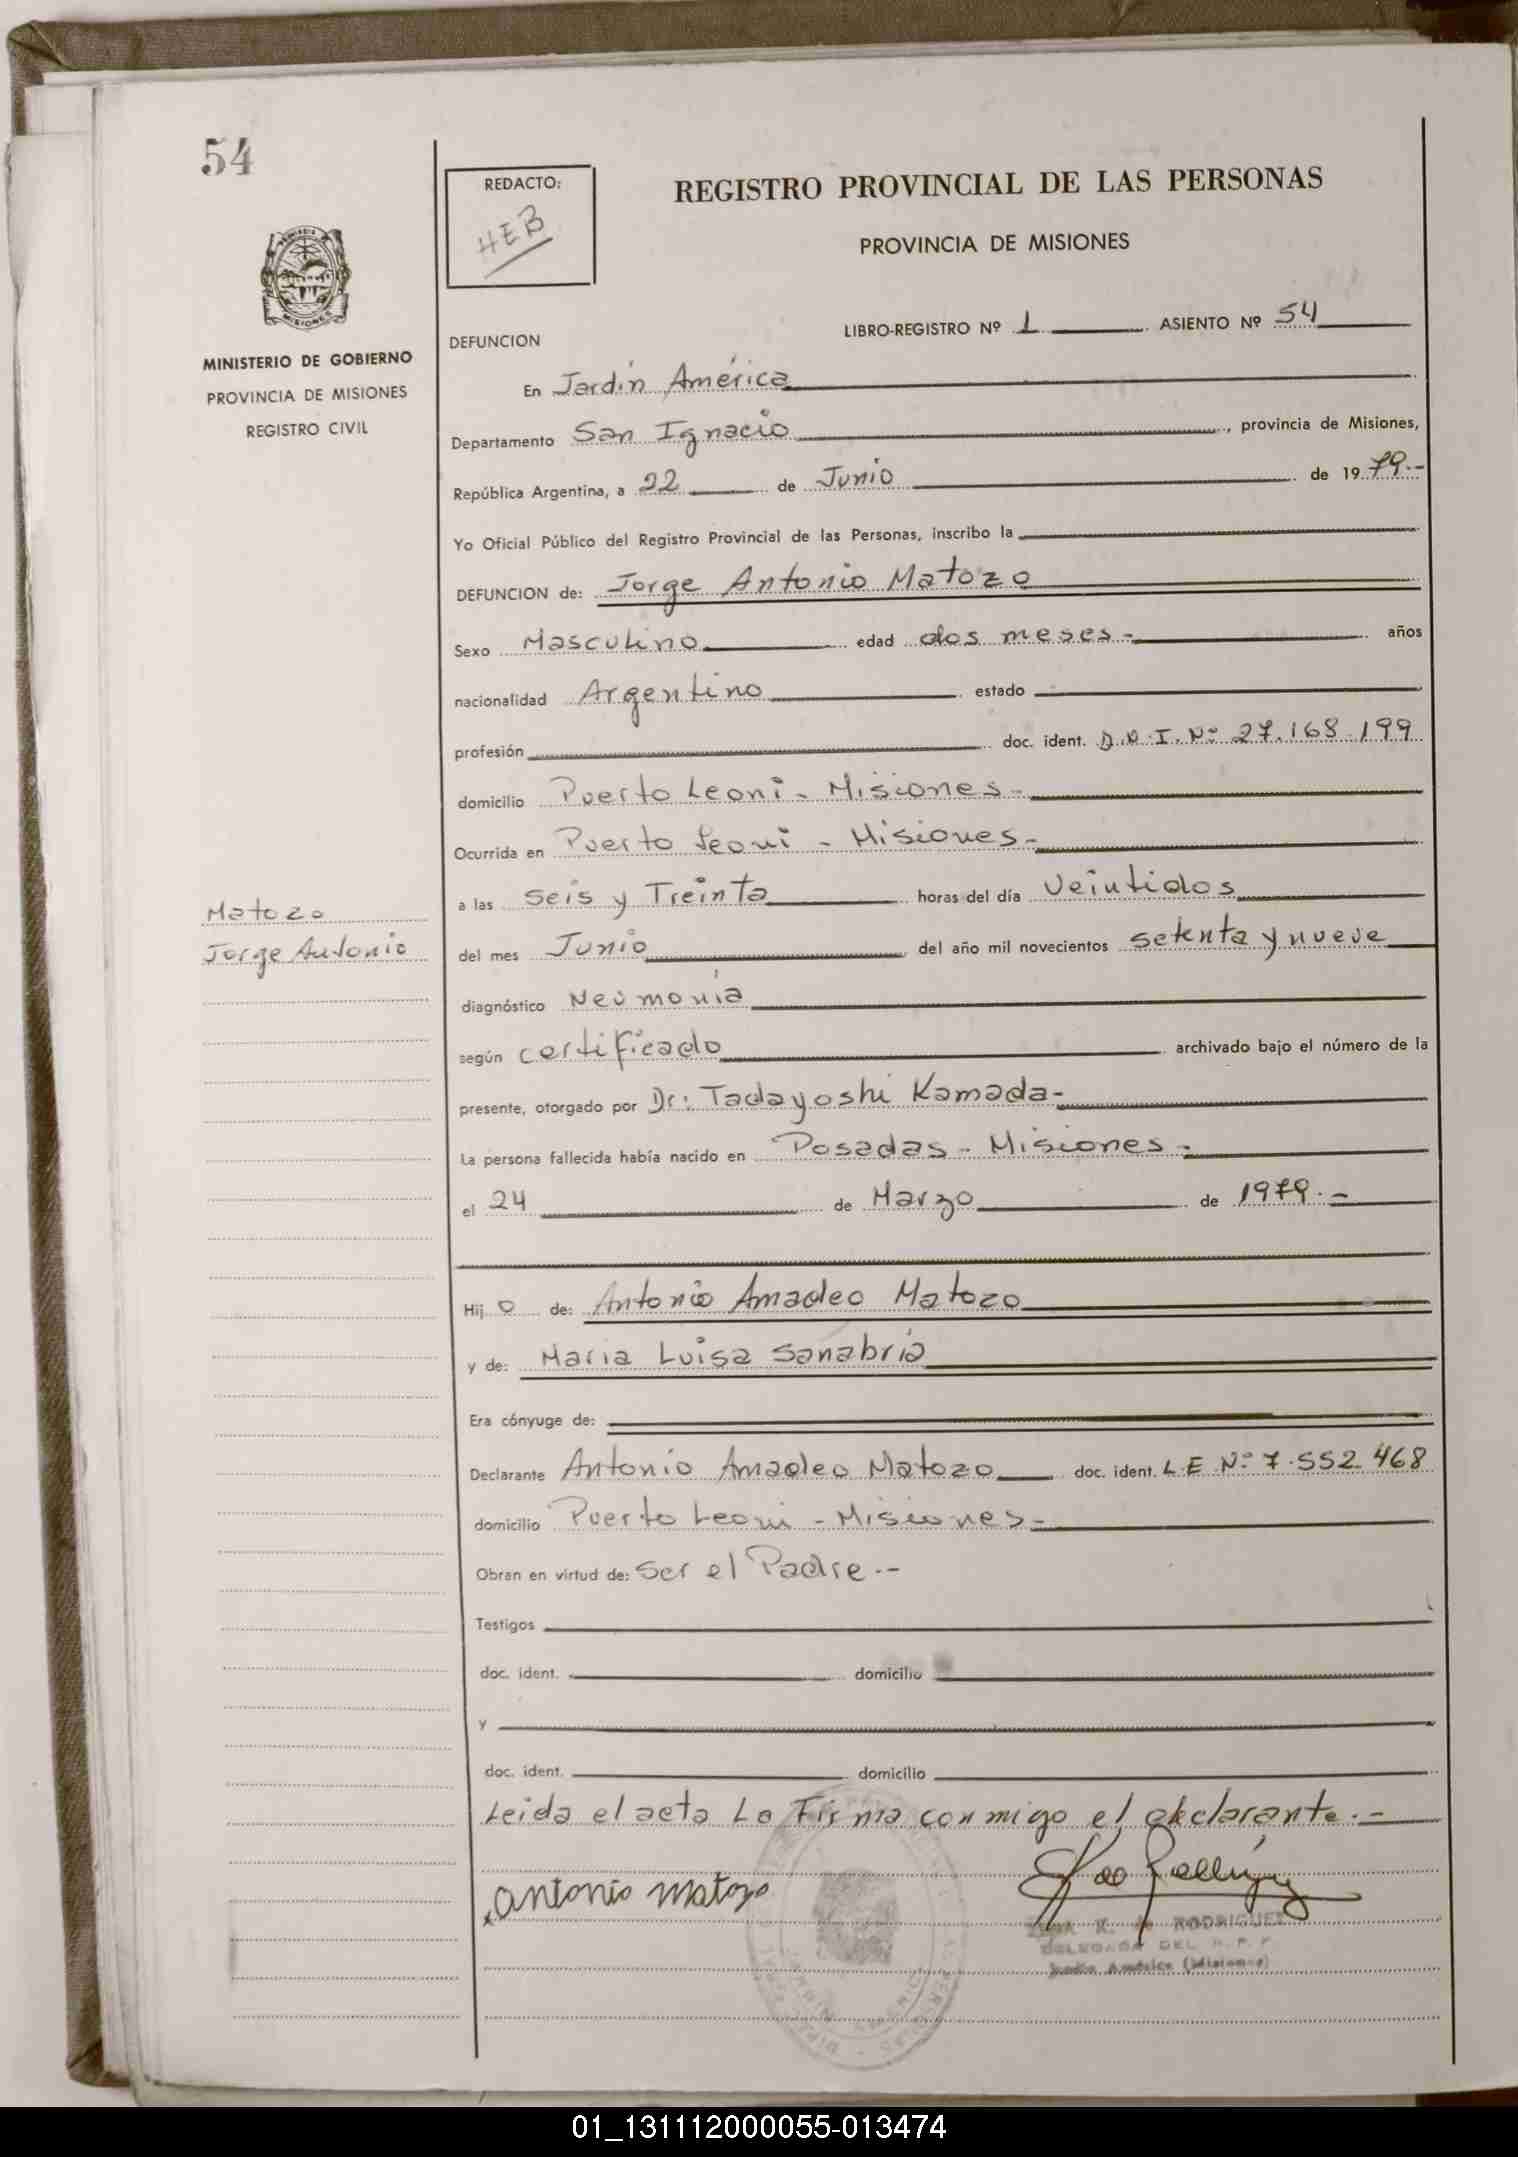 54
REDACTO:
HEB
REGISTRO PROVINCIAL DE LAS PERSONAS
PROVINCIA DE MISIONES
MISIONES
MINISTERIO DE GOBIERNO
PROVINCIA DE MISIONES
REGISTRO CIVIL
LIBRO-REGISTRO Nº 1 ASIENTO Nº 54
DEFUNCION
En Jardín América
Departamento San Ignacio, provincia de Misiones,
República Argentina, a 22 de Junio de 1979.-
Yo Oficial Público del Registro Provincial de las Personas, inscribo la
DEFUNCION de: Jorge Antonio Matozo
Sexo Masculino edad dos meses- años
nacionalidad Argentino estado
profesión doc. ident. D.N.I. Nº 27.168.199
domicilio Puerto Leoni - Misiones-
Ocurrida en Puerto Leoni - Misiones-
Matozo
Jorge Antonio
a las seis y Treinta horas del día Veintidos
del mes Junio del año mil novecientos setenta y nueve
diagnóstico Neumonía
según certificado archivado bajo el número de la
presente, otorgado por Dr: Tadayoshi Kamada-
La persona fallecida había nacido en Posadas - Misiones-
el 24 de Marzo de 1979.-
Hijo de: Antonio Amadeo Matozo
y de: Maria Luisa Sanabria
Era cónyuge de:
Declarante Antonio Amadeo Matozo doc. ident. L.E Nº 7.552.468
domicilio Puerto Leoni - Misiones-
Obran en virtud de: ser el Padre.-
Testigos
doc. ident. domicilio
y
doc. ident. domicilio
Leida el acta La Firma conmigo el declarante.-
Antonio Matozo
RODRIGUEZ
DELEGADA DEL R.P.P.
Jardín América (Misiones)
01_131112000055-013474